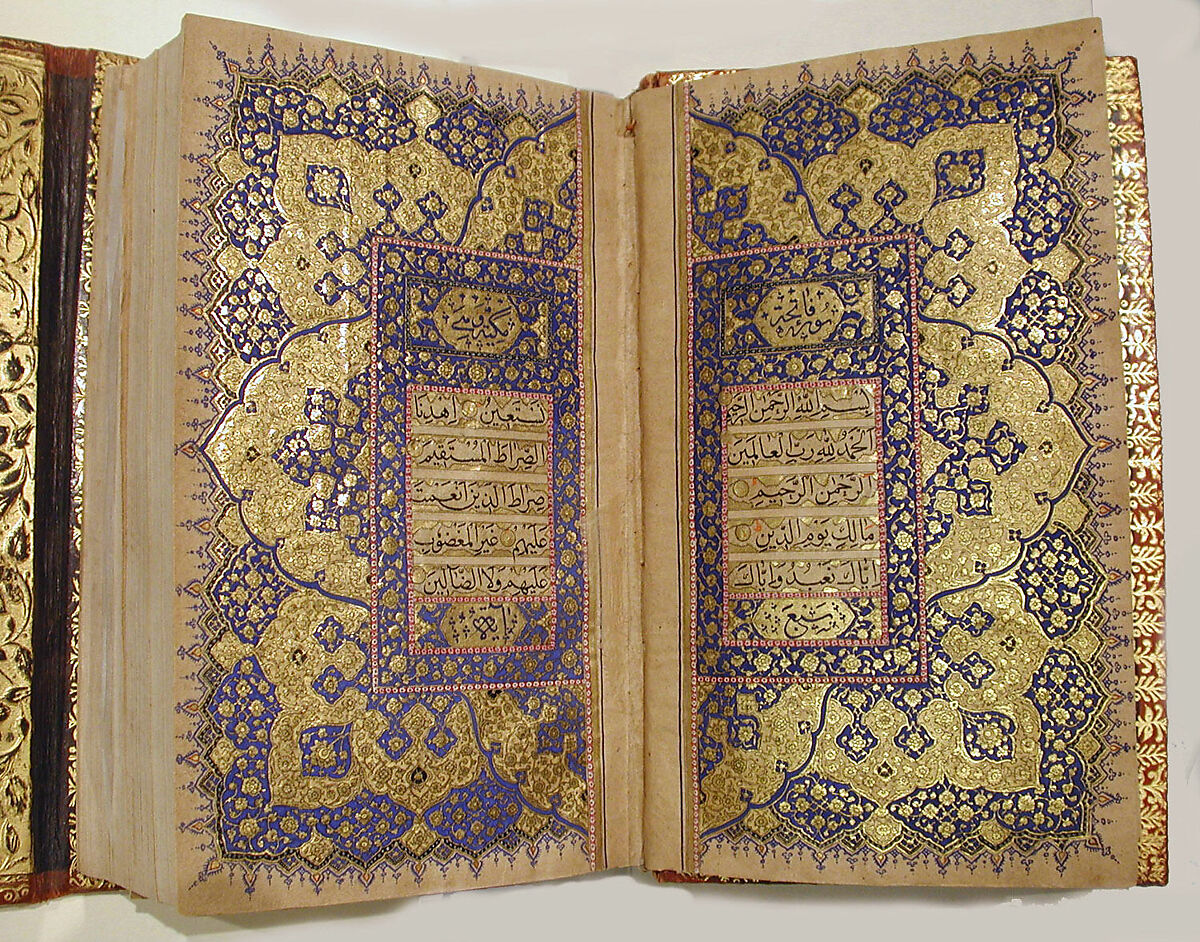 سورة فاتحة
بسم الله الرحمن الرحيم
الحمد لله رب العالمين
الرحمن الرحيم
مالك يوم الدين
اياك نعبد واياك
سبع
مكية وهي
نستعين اهدنا
الصراط المستقيم
صراط الذين انعمت
عليهم غير المغضوب
عليهم ولا الضآلين